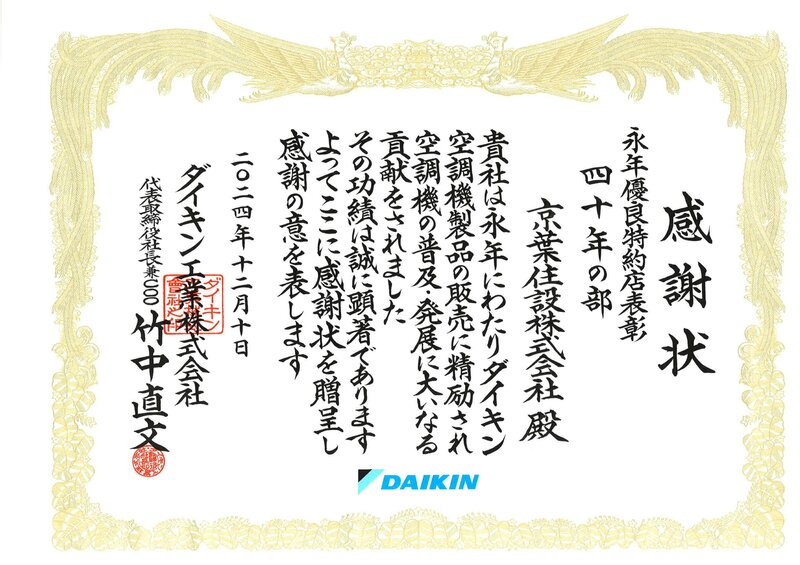 感謝状
永年優良特約店表彰
四十年の部
京葉住設株式会社 殿
貴社は永年にわたりダイキン
空調機製品の販売に精励され
空調機の普及・発展に大いなる
貢献をされました
その功績は誠に顕著であります
よってここに感謝状を贈呈し
感謝の意を表します
二〇二四年十二月十日
ダイキン工業株式会社
代表取締役社長兼COO 竹中直文
DAIKIN